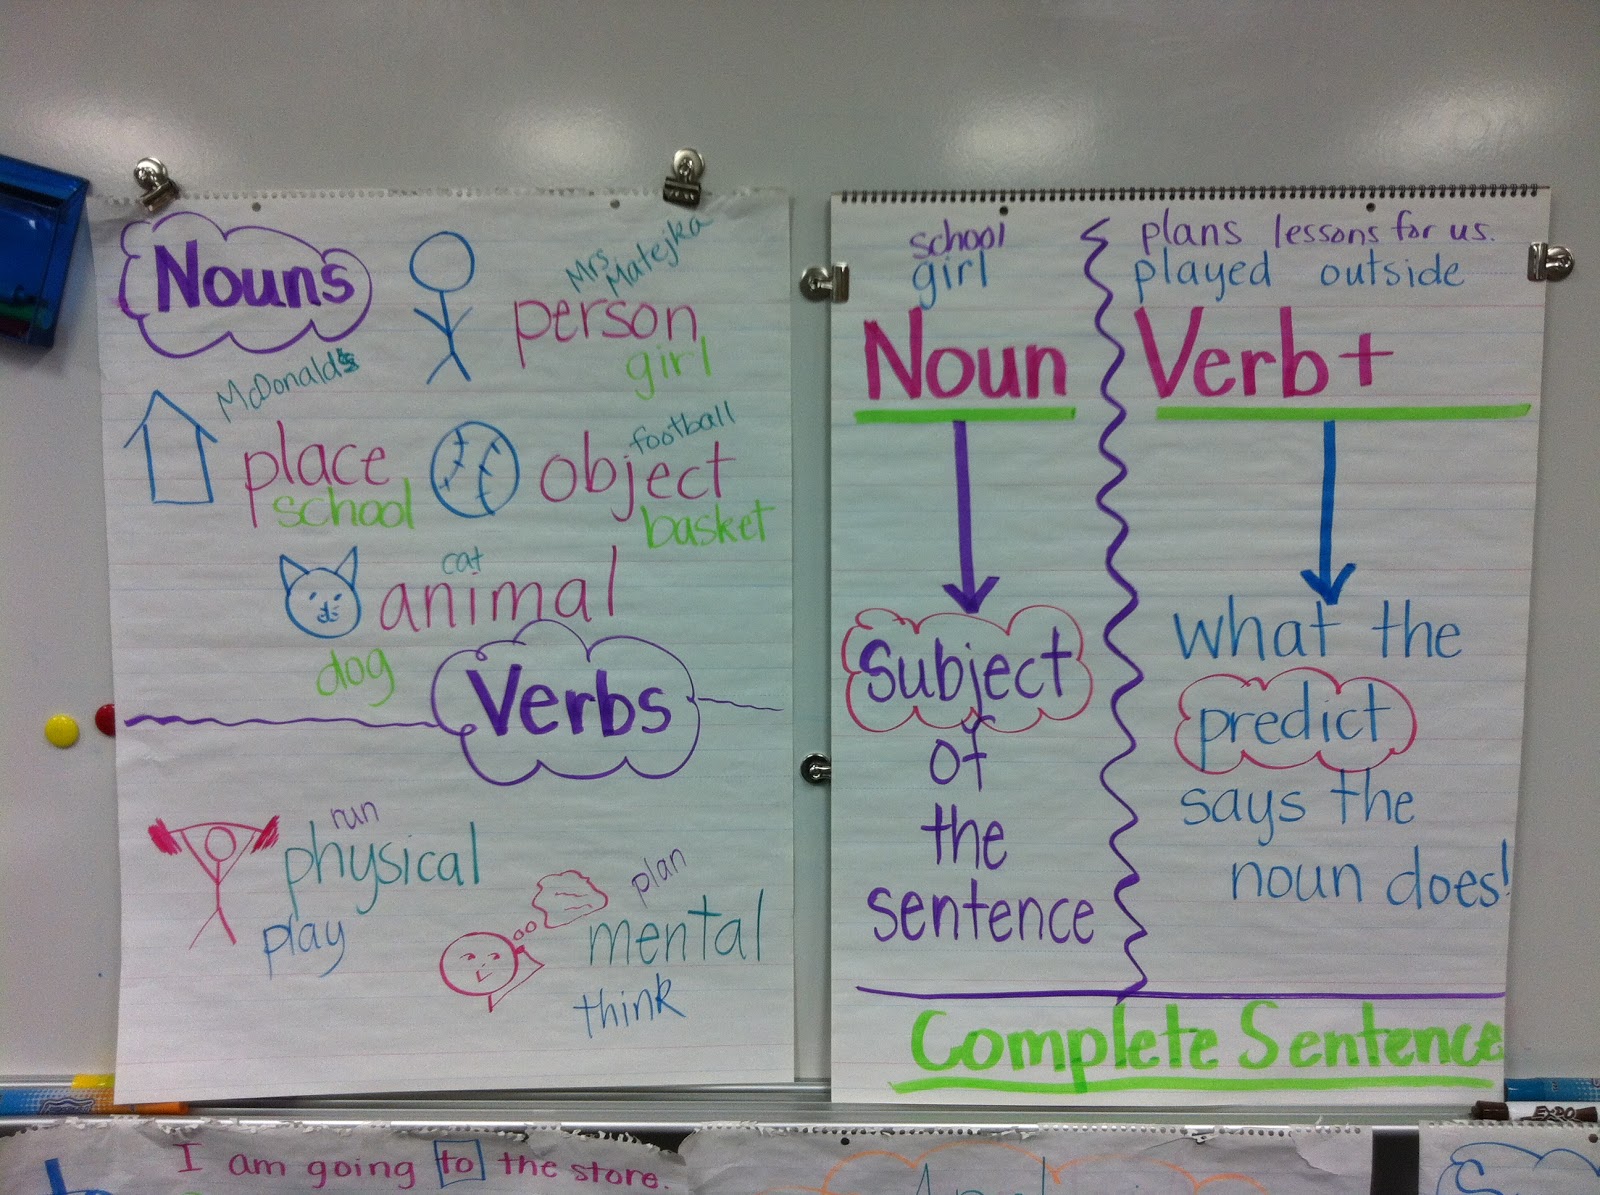 Nouns
Mrs. Matejka
person
girl
McDonald's
place
school
football
object
basket
cat
animal
dog
Verbs
run
physical
play
plan
mental
think
school
girl
plans lessons for us.
played outside
Noun
Verb+
Subject
of
the
sentence
what the
predict
says the
noun does!
Complete Sentence
EXPO
I am going to the store.